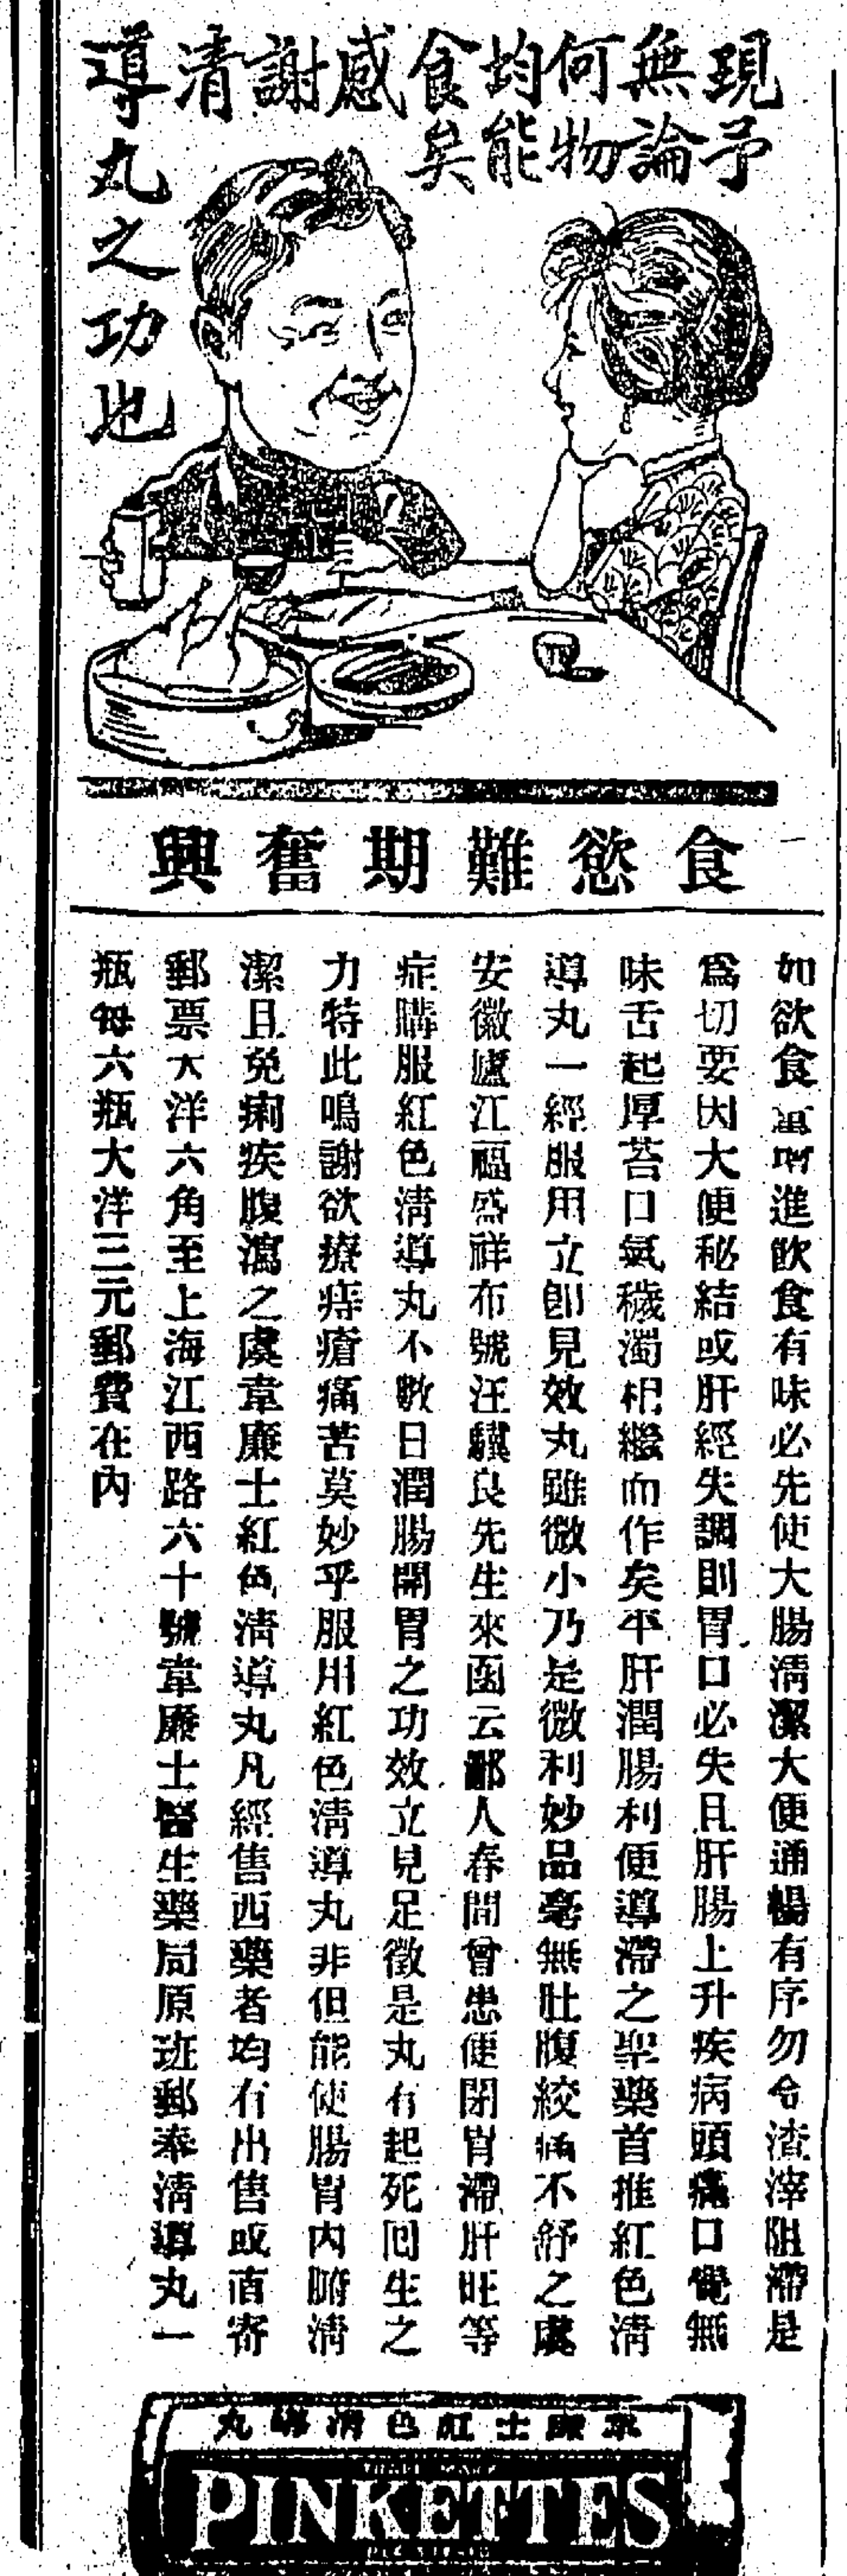 現予
無論
何物
均能
食矣
感
謝
清
導丸之功也
食慾難期奮興
如欲食增進飲食有味必先使大腸淸潔大便通暢有序勿令渣滓阻滯是
爲切要因大便秘結或肝經失調則胃口必失且肝腸上升疾病頭痛口覺無
味舌起厚苔口氣穢濁相繼而作矣平肝潤腸利便導滯之聖藥首推紅色淸
導丸一經服用立卽見效丸雖微小乃是微利妙品毫無肚腹絞痛不舒之虞
安徽廬江福盛祥布號汪驥良先生來函云鄙人春間曾患便閉胃滯肝旺等
症購服紅色淸導丸不數日潤腸開胃之功效立見足徵是丸有起死回生之
力特此鳴謝欲療痔瘡痛苦莫妙乎服用紅色淸導丸非但能使腸胃內腑淸
潔且免痢疾腹瀉之虞韋廉士紅色淸導丸凡經售西藥者均有出售或直寄
郵票大洋六角至上海江西路六十號韋廉士醫生藥局原班郵奉淸導丸一
瓶每六瓶大洋三元郵費在內
士紅色淸導丸
PINKETTES